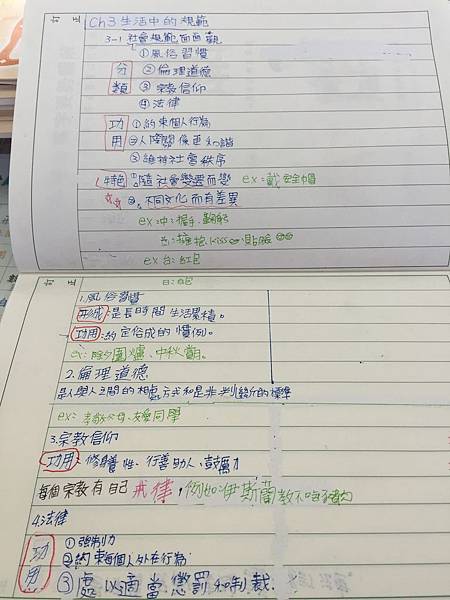 訂 正
Ch3 生活中的規範
3-1 社會規範面面觀
分類
①風俗習慣
②倫理道德
③宗教信仰
④法律
功用
①約束個人行為
②人際關係更和諧
③維持社會秩序
特色 ①隨社會變遷而變 ex:戴安全帽
②不同文化而有差異
ex:中:握手、鞠躬
西:擁抱、kiss、貼臉
ex 台:紅包
日:白包
訂 正
1.風俗習慣
形成:是長時間生活累積。
功用:約定俗成的慣例。
ex:除夕圍爐、中秋
2.倫理道德
是人與人之間的相處方式和是非判斷的標準
ex:孝敬父母、友愛同學
3.宗教信仰
功用:修養性、行善助人、鼓勵
每個宗教有自己戒律,例如:伊斯蘭教不吃豬肉
4.法律
功用
①強制力
②約束每個人外在行為
③處以適當懲罰和制裁.